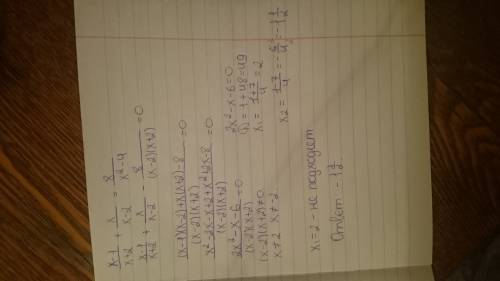 x-1/x+2 + x/x-2 = 8/x²-4
x-1/x+2 + x/x-2 - 8/(x-2)(x+2) = 0
(x-1)(x-2)+x(x+2)-8/(x-2)(x+2) = 0
x²-2x-x+2+x²+2x-8/(x-2)(x+2) = 0
2x²-x-6/(x-2)(x+2) = 0
(x-2)(x+2)≠0
x≠2 x≠-2
2x²-x-6=0
D=1+48=49
x₁= 1+7/4 = 2
x₂= 1-7/4 = -6/4 = -1 1/2
x₁=2 - не подходит
Ответ -1 1/2